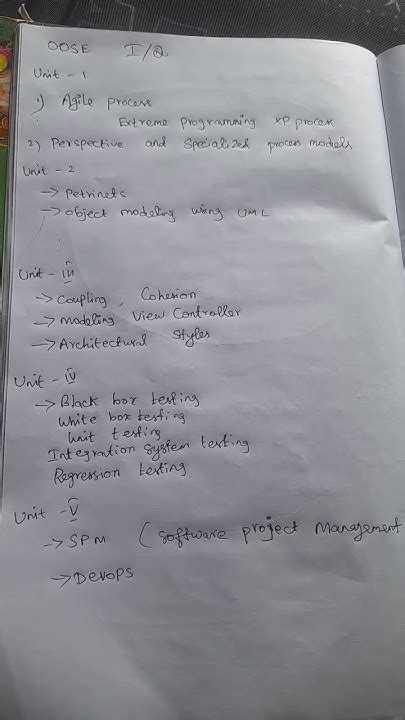 OOSE I/Q
Unit - 1
1) Agile process
Extreme programming XP process
2) Perspective and Specialized process models
Unit - 2
→ Petrinets
→ object modeling using UML
Unit - iii
→ Coupling, Cohesion
→ modeling View Controller
→ Architectural Styles
Unit - iv
→ Black box testing
white box testing
unit testing
Integration system testing
Regression testing
Unit - v
→ SPM (Software project Management
→ Devops